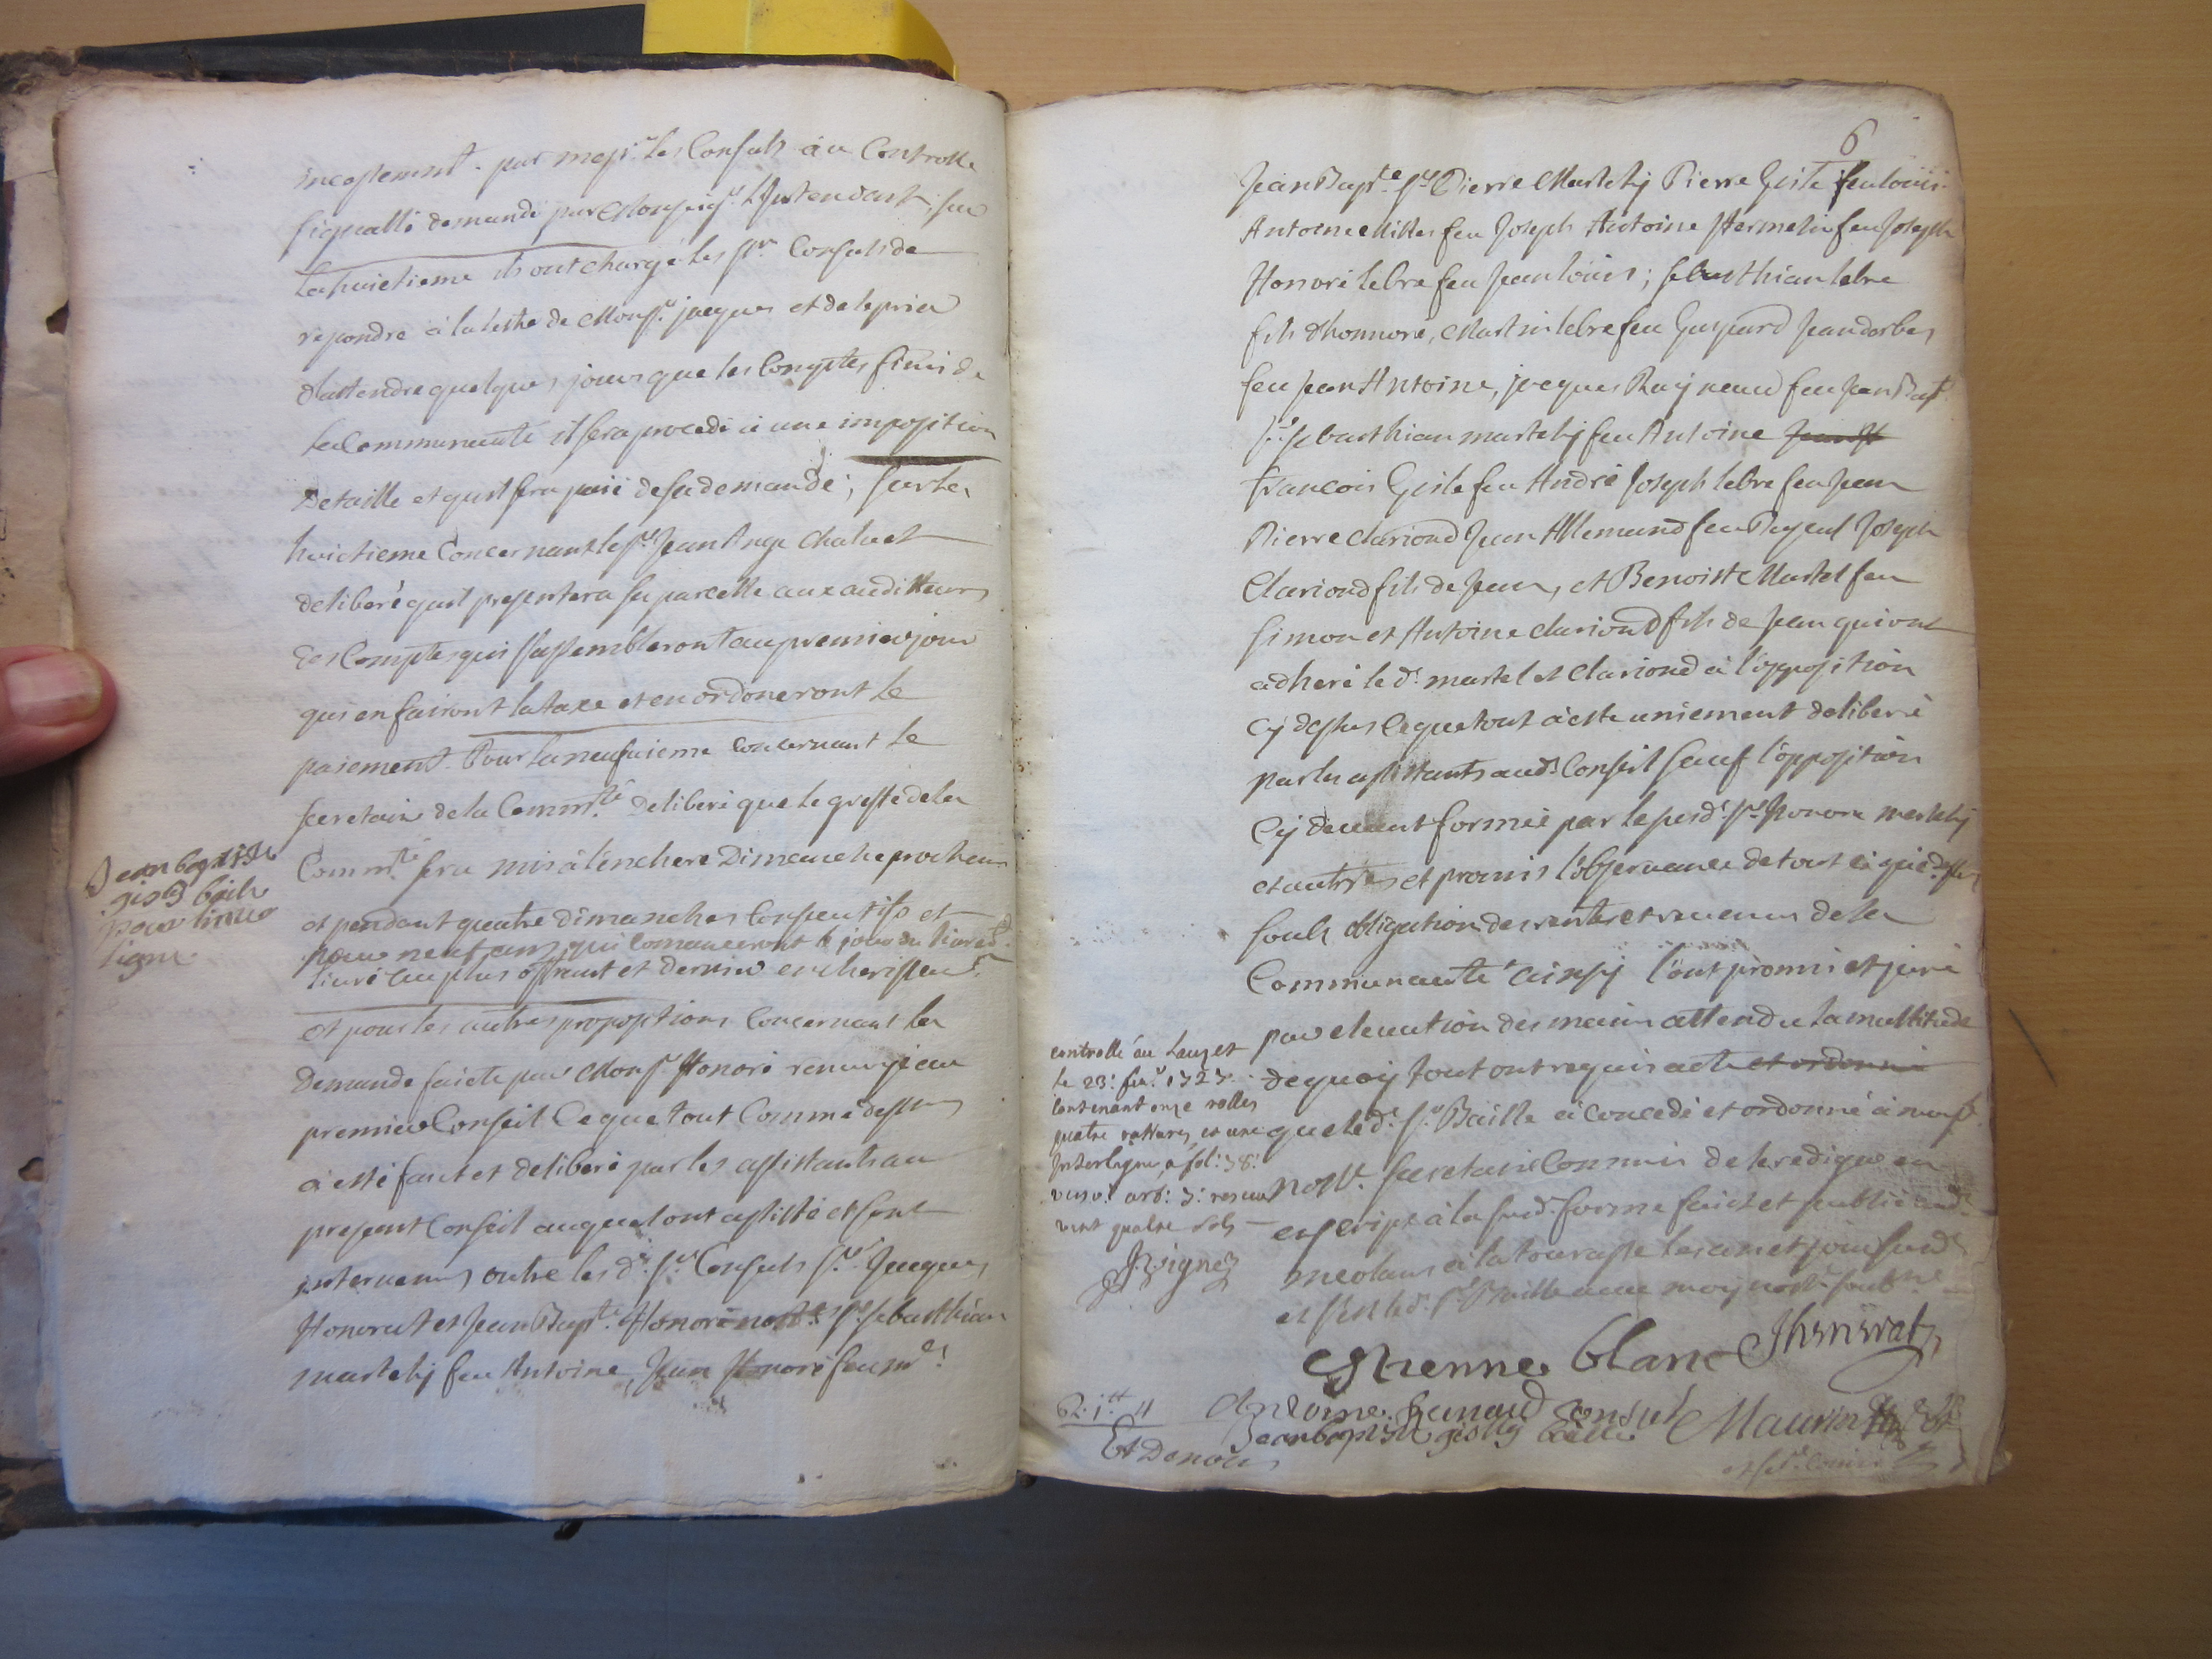 incessemment. par messrs les Consuls au Controlle
signalle demandé par Monseigr L'Intendant, sur
La huictieme ils ont chargé les srs Consuls de
repondre à la lettre de Monsr jacques et de le prier
d'attendre quelques jours que les Comptes finis de
la Communauté il sera procedé à une imposition
De taille et quil sera paié de sa demande; sur la
huictieme Concernant le sr Jean Ange Chaluet
deliberé quil presentera sa parcelle aux auditteurs
des Comptes qui s'assembleront au premier jour
qui en fairont la taxe et en ordoneront le
paiement. Pour la neufuieme concernant le
secretaire de la Commté deliberé que le greffe de la
Commté sera mis à l'enchere Dimanche prochain
et pendant quatre dimanches Consecutifs et
pour neuf ans qui Comanceront le jour du
liuré au plus offrant et dernier encherisseur
et pour les autres propositions Concernant la
Demande faicte par Monsr Honoré renuoyé au
premier Conseil Ce que tout Comme dessus
à esté faict et deliberé par les assistants au
present Conseil auquel ont assisté et sont
interuenus outre les d. srs Consuls srs Jacques
Honorat et Jean Bapte Honoré nore sr sebasthian
martelly feu Antoine, Jean Honoré feu md
Jean baptiste
gistij baile
pour
ligne
6
Jean Bapte sr Pierre Martelly Pierre Giste feu louis
Antoine Milles feu Joseph Antoine Hermelin feu Joseph
Honoré lebre feu Jean louis; sebasthian lebre
fils d'honnoré, Martin lebre feu Gaspard Jean dorbes
feu Jean Antoine, jacques Raynaud feu Jean Bapt
sr sebasthian martelly feu Antoine
francois Giste feu André Joseph lebre feu Jean
Pierre Clariond Jean Allemand feu Joseph
Clariond fils de Jean, et Benoist Martel feu
Simon et Antoine clariond fils de Jean qui ont
adheré le d. martel et Clariond à l'opposition
Cy dessus Ce que tout à este uniement deliberé
par les assistants aud. Conseil sauf l'opposition
Cy deuant formée par le sr Honoré martelly
et autres et promis l'obseruance de tout ce que dessus
soubs obligation des rentes et reuenus de la
Communauté ainsy l'ont promis et juré
par eleuation des mains attendu la multitude
de quoy tout ont requis acte et ordonné
que le d. sr Baille à concedé et ordonné à moy
nore. secretaire Commis de le rediger en
escript à la sud. forme faict et publié aud.
meolans à la tourasse les an et jour sud.
et s'est le d. sr Baille auec moy nore soubné
controllé au Lauzet
le 23: feur 1727
Contenant onze rolles
quatre ratures, et une
Interligne, à fol: 38:
vint quatre sols
Estienne blanc JHonnorat
Antoine Renaud Consul Maurin
Jean baptiste gistij baille
R. 1tt 4